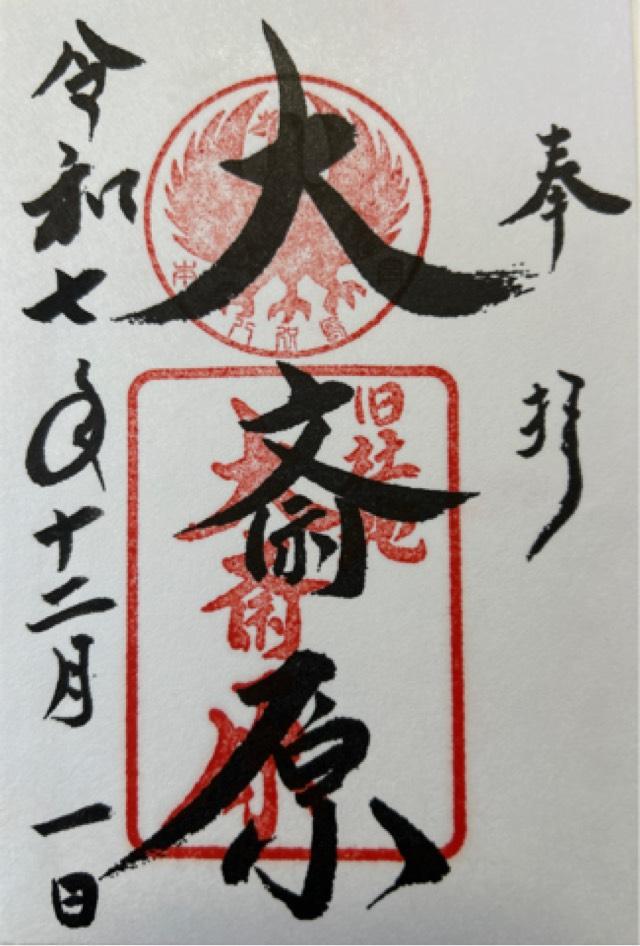 奉拝
大斎原
旧社地
大斎原
令和七年十二月一日